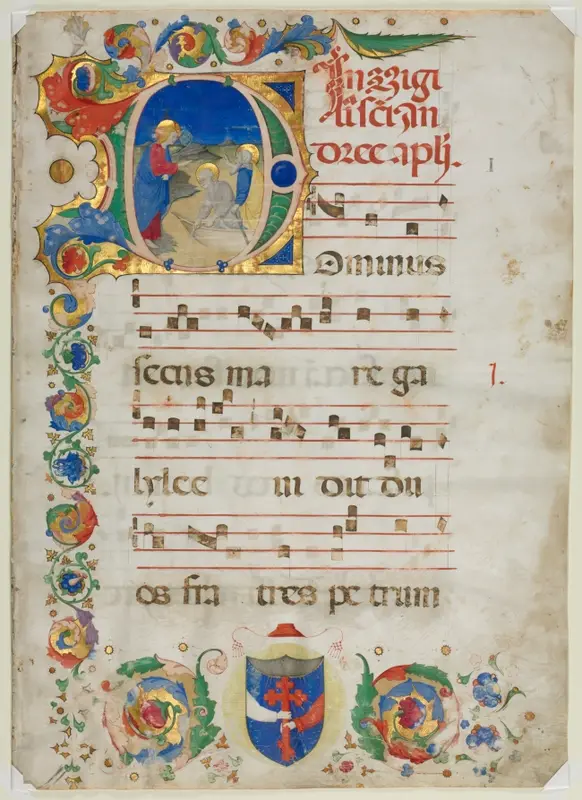 In uigi
li sci An
dree aplj.
I
DOminus
secus ma re ga
1.
lylee ui dit du
os fra tres pe trum